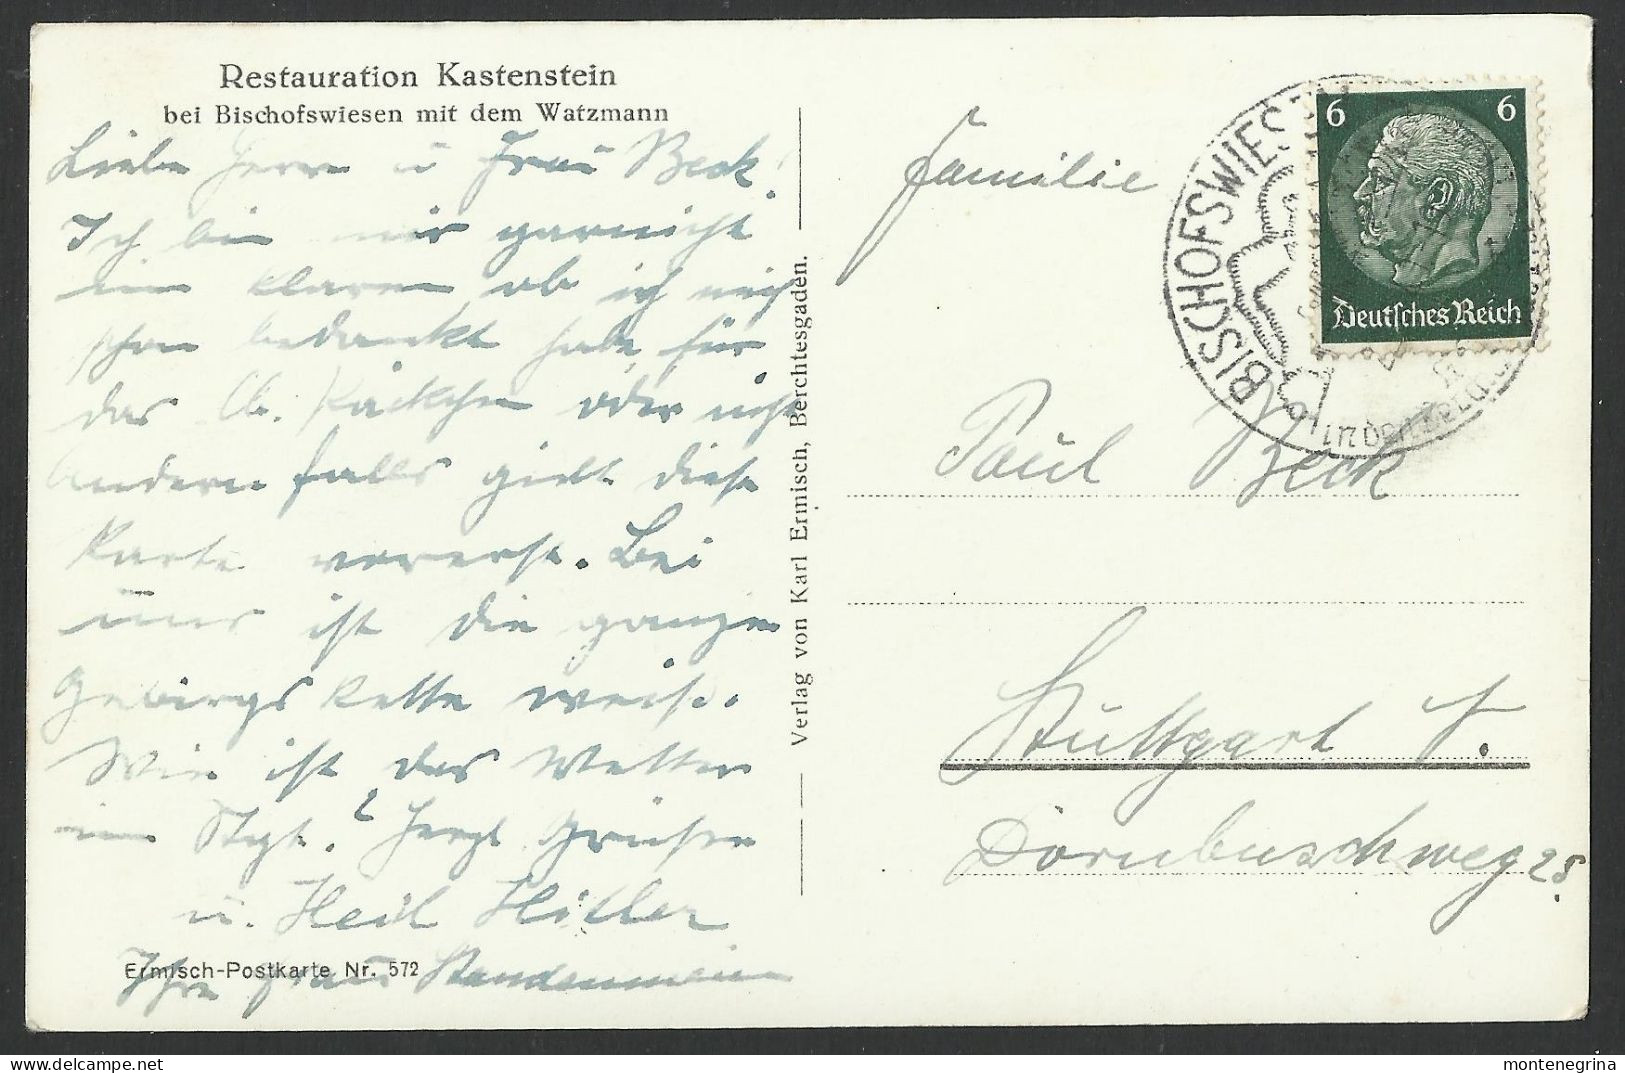 Restauration Kastenstein
bei Bischofswiesen mit dem Watzmann
Liebe Herrn u Frau Beck!
Ich bin mir garnicht
im klaren ob ich mich
schon bedankt habe, für
das Päckchen oder nicht
Andern falls gilt diese
Karte vorerst. Bei
uns ist die ganze
Gebirgs kette weiß.
Wie ist das Wetter
in Stgt.? Herzl. Grüße
u. Heil Hitler
Ihre Frau
Ermisch-Postkarte Nr. 572
Verlag von Karl Ermisch, Berchtesgaden.
BISCHOFSWIESEN
6 6
Deutsches Reich
Familie
Paul Beck
Stuttgart
Dornbuschweg 25.
montenegrina